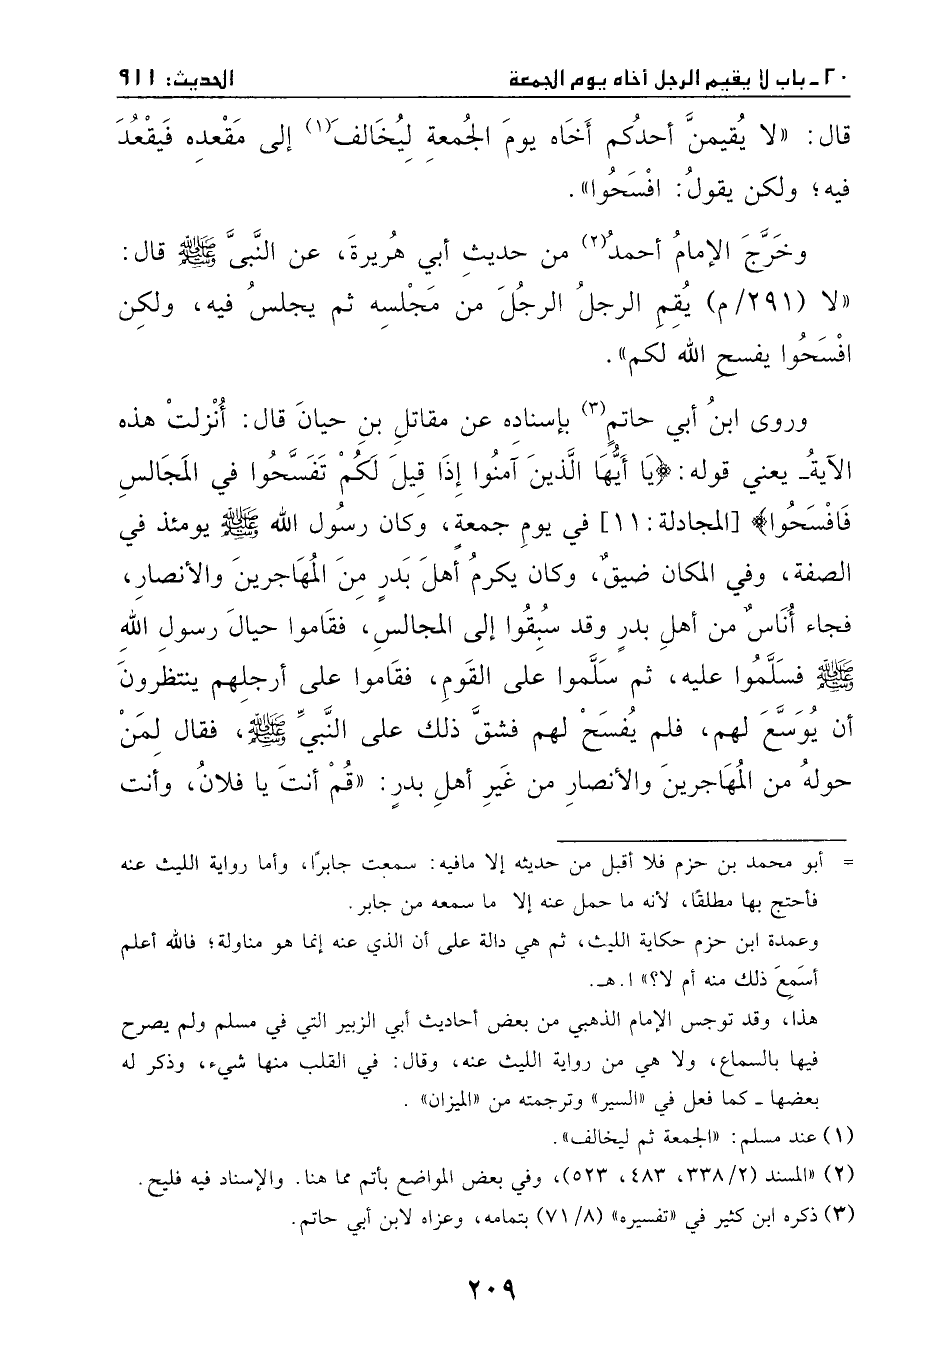 ٢٠ـ باب لا يقيم الرجل أخاه يوم الجمعة الحديث: ٩١١
قال: «لا يُقيمنَّ أحدُكم أَخَاه يومَ الجُمعةِ لِيُخَالفَ(١) إلى مَقْعدِه فَيقْعُدَ
فيه؛ ولكن يقولُ: افْسَحُوا».
وخَرَّجَ الإمامُ أحمدُ(٢) من حديثِ أبي هُريرةَ، عن النَّبيَّ ﷺ قال:
«لا (٢٩١/م) يُقِمِ الرجلُ الرجلَ من مَجْلسِه ثم يجلسُ فيه، ولكنِ
افْسَحُوا يفسحِ الله لكم».
وروى ابنُ أبي حاتمٍ(٣) بإسنادِه عن مقاتلِ بنِ حيانَ قال: أُنْزلتْ هذه
الآيةُـ يعني قوله: ﴿يَا أَيُّهَا الَّذينَ آمنُوا إِذَا قِيلَ لَكُمْ تَفَسَّحُوا في المَجَالسِ
فَافْسَحُوا﴾ [المجادلة: ١١] في يومِ جمعةٍ، وكان رسُول الله ﷺ يومئذ في
الصفة، وفي المكان ضيقٌ، وكان يكرمُ أهلَ بَدرٍ مِنَ المُهَاجرينَ والأنصارِ،
فجاء أُنَاسٌ من أهلِ بدرٍ وقد سبُقُوا إلى المجالسِ، فقَاموا حيالَ رسولِ اللهِ
ﷺ فسَلَّمُوا عليه، ثم سلَّموا على القَومِ، فقَاموا على أرجلِهم ينتظرونَ
أن يُوَسَّعَ لهم، فلم يُفسَحْ لهم فشقَّ ذلك على النَّبيِّ ﷺ، فقال لِمَنْ
حولهُ من المُهَاجرينَ والأنصارِ من غَيرِ أهلِ بدرٍ: «قُمْ أنتَ يا فلانُ، وأنت
= أبو محمد بن حزم فلا أقبل من حديثه إلا مافيه: سمعت جابرًا، وأما رواية الليث عنه
فأحتج بها مطلقًا، لأنه ما حمل عنه إلا ما سمعه من جابر.
وعمدة ابن حزم حكاية الليث، ثم هي دالة على أن الذي عنه إنما هو مناولة؛ فالله أعلم
أسَمِعَ ذلك منه أم لا؟» ا.هـ.
هذا، وقد توجس الإمام الذهبي من بعض أحاديث أبي الزبير التي في مسلم ولم يصرح
فيها بالسماع، ولا هي من رواية الليث عنه، وقال: في القلب منها شيء، وذكر له
بعضها ـ كما فعل في «السير» وترجمته من «الميزان» .
(١) عند مسلم: «الجمعة ثم ليخالف».
(٢) «المسند (٢/ ٣٣٨، ٤٨٣، ٥٢٣)، وفي بعض المواضع بأتم مما هنا. والإسناد فيه فليح.
(٣) ذكره ابن كثير في «تفسيره» (٨/ ٧١) بتمامه، وعزاه لابن أبي حاتم.
٢٠٩